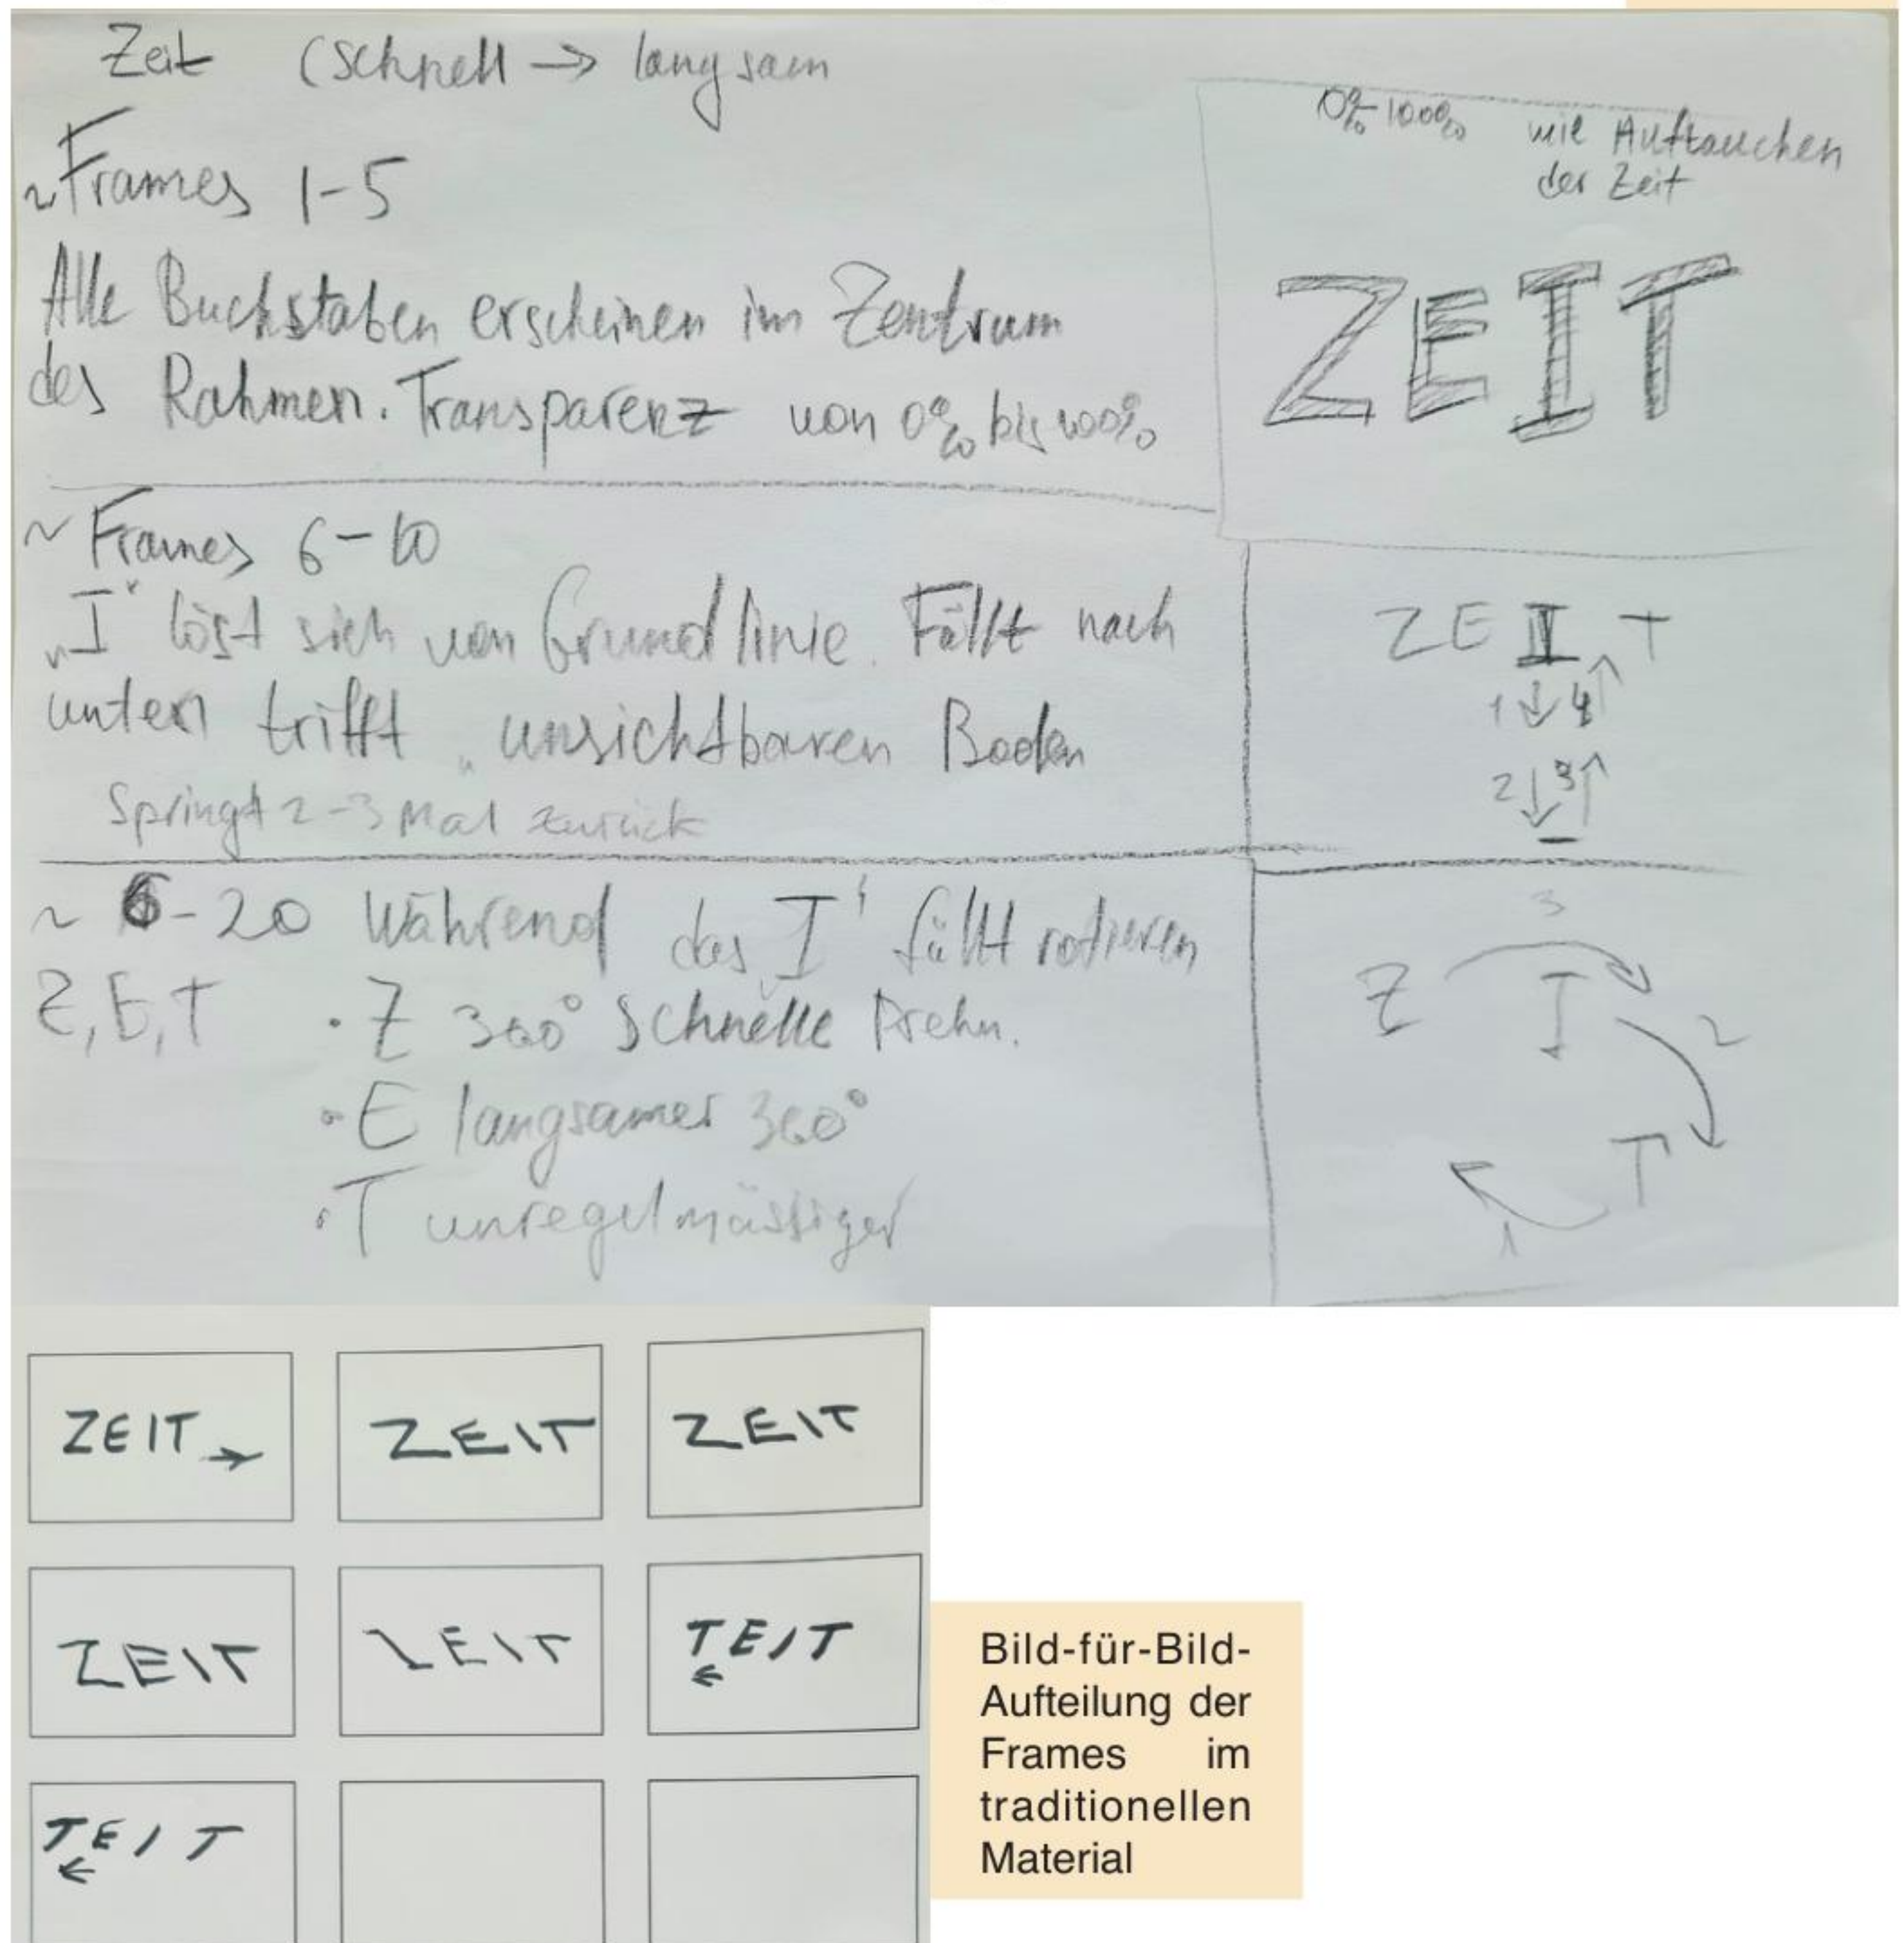 Zeit (schnell → langsam
~Frames 1-5
Alle Buchstaben erscheinen im Zentrum
des Rahmen. Transparenz von 0% bis 100%
0%-100% wie Auftauchen
der Zeit
ZEIT
~ Frames 6-10
„I“ löst sich von Grundlinie. Fällt nach
unten trifft „unsichtbaren Boden
Springt 2-3 Mal zurück
ZEIT
1↓ 4↑
2↓ 3↑
~ 6-20 Während das „I“ fällt rotieren
Z, E, T · Z 360° Schnelle Drehn.
· E langsamer 360°
· T unregelmässiger
3
Z I
2
T
1
ZEIT → ZEIT ZEIT
ZEIT ZEIT TEIT
←
TEIT
←
Bild-für-Bild-
Aufteilung der
Frames im
traditionellen
Material